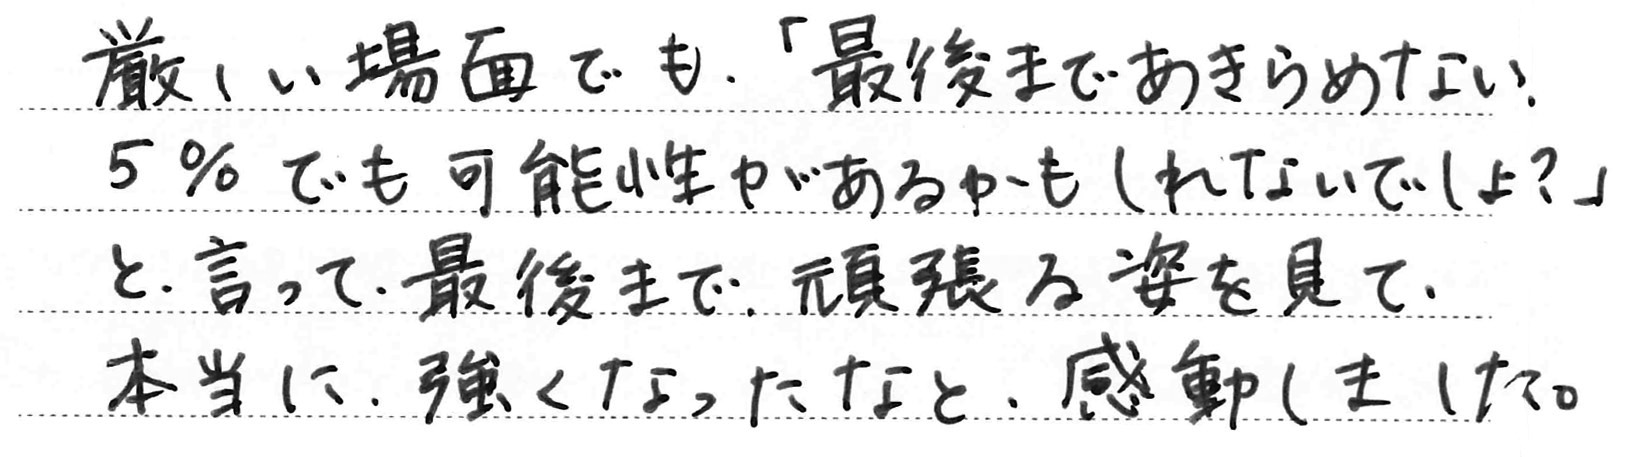 厳しい場面でも、「最後まであきらめない、
5%でも可能性があるかもしれないでしょ?」
と、言って、最後まで、頑張る姿を見て、
本当に、強くなったなと、感動しました。